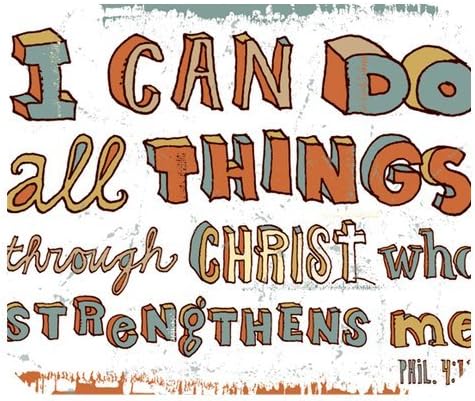 I CAN DO
all THINGS
through CHRIST who
STReNgTHENS me
PHiL. 4:13